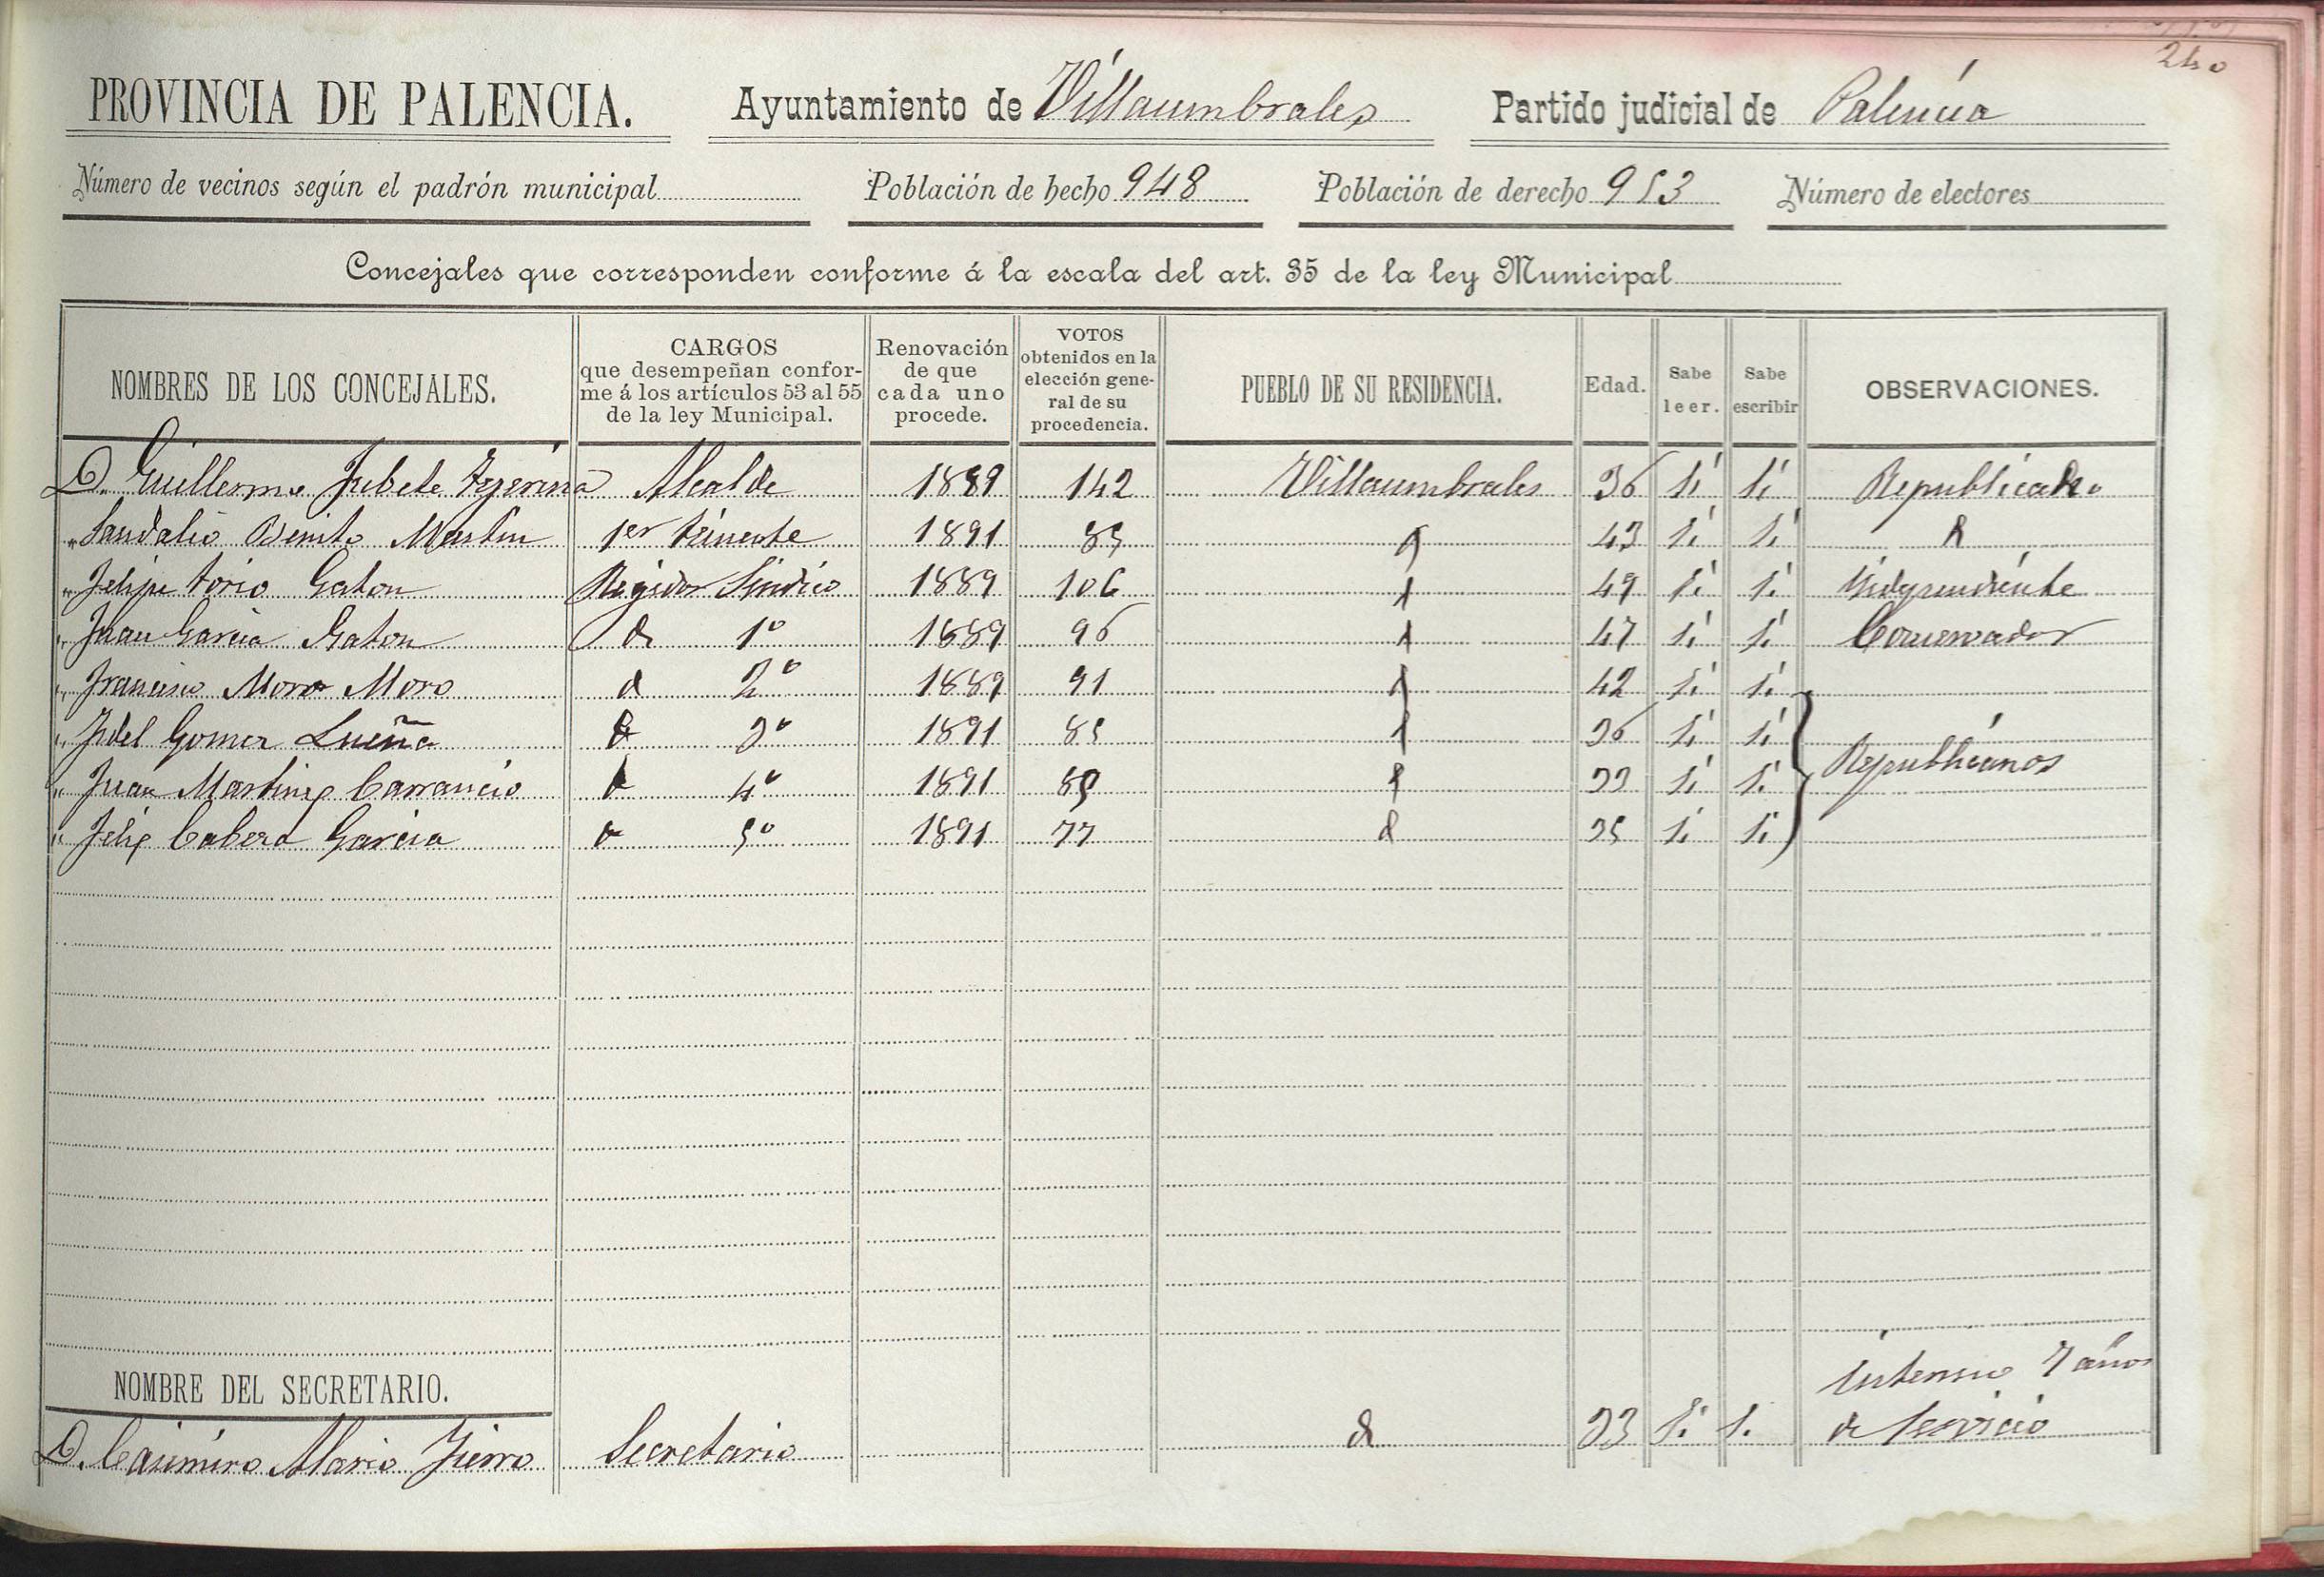 240
PROVINCIA DE PALENCIA. Ayuntamiento de Villaumbrales Partido judicial de Palencia
Número de vecinos según el padrón municipal Población de hecho 948 Población de derecho 953 Número de electores
Concejales que corresponden conforme á la escala del art. 35 de la ley Municipal
NOMBRES DE LOS CONCEJALES. CARGOS que desempeñan conforme á los artículos 53 al 55 de la ley Municipal. Renovación de que cada uno procede. VOTOS obtenidos en la elección general de su procedencia. PUEBLO DE SU RESIDENCIA. Edad. Sabe leer. Sabe escribir OBSERVACIONES.
D. Guillermo Jubete Tejerina Alcalde 1889 142 Villaumbrales 36 Si Si Republicano
" Sandalio Benito Martin 1er teniente 1891 85 43 Si Si
" Felipe Torio Gaton Regidor Sindico 1889 106 49 Si Si Independiente
" Juan Garcia Gaton 1º 1889 96 47 Si Si Conservador
" Francisco Moro Moro 2º 1889 91 42 Si Si
" Fidel Gomez Lueña 3º 1891 85 36 Si Si
" Juan Martinez Carrancio 4º 1891 33 Si Si Republicanos
" Felix Cabeza Garcia 5º 1891 77 35 Si Si
NOMBRE DEL SECRETARIO.
D. Casimiro Alario Fierro Secretario 33 Si Si Interino 7 años
de servicio